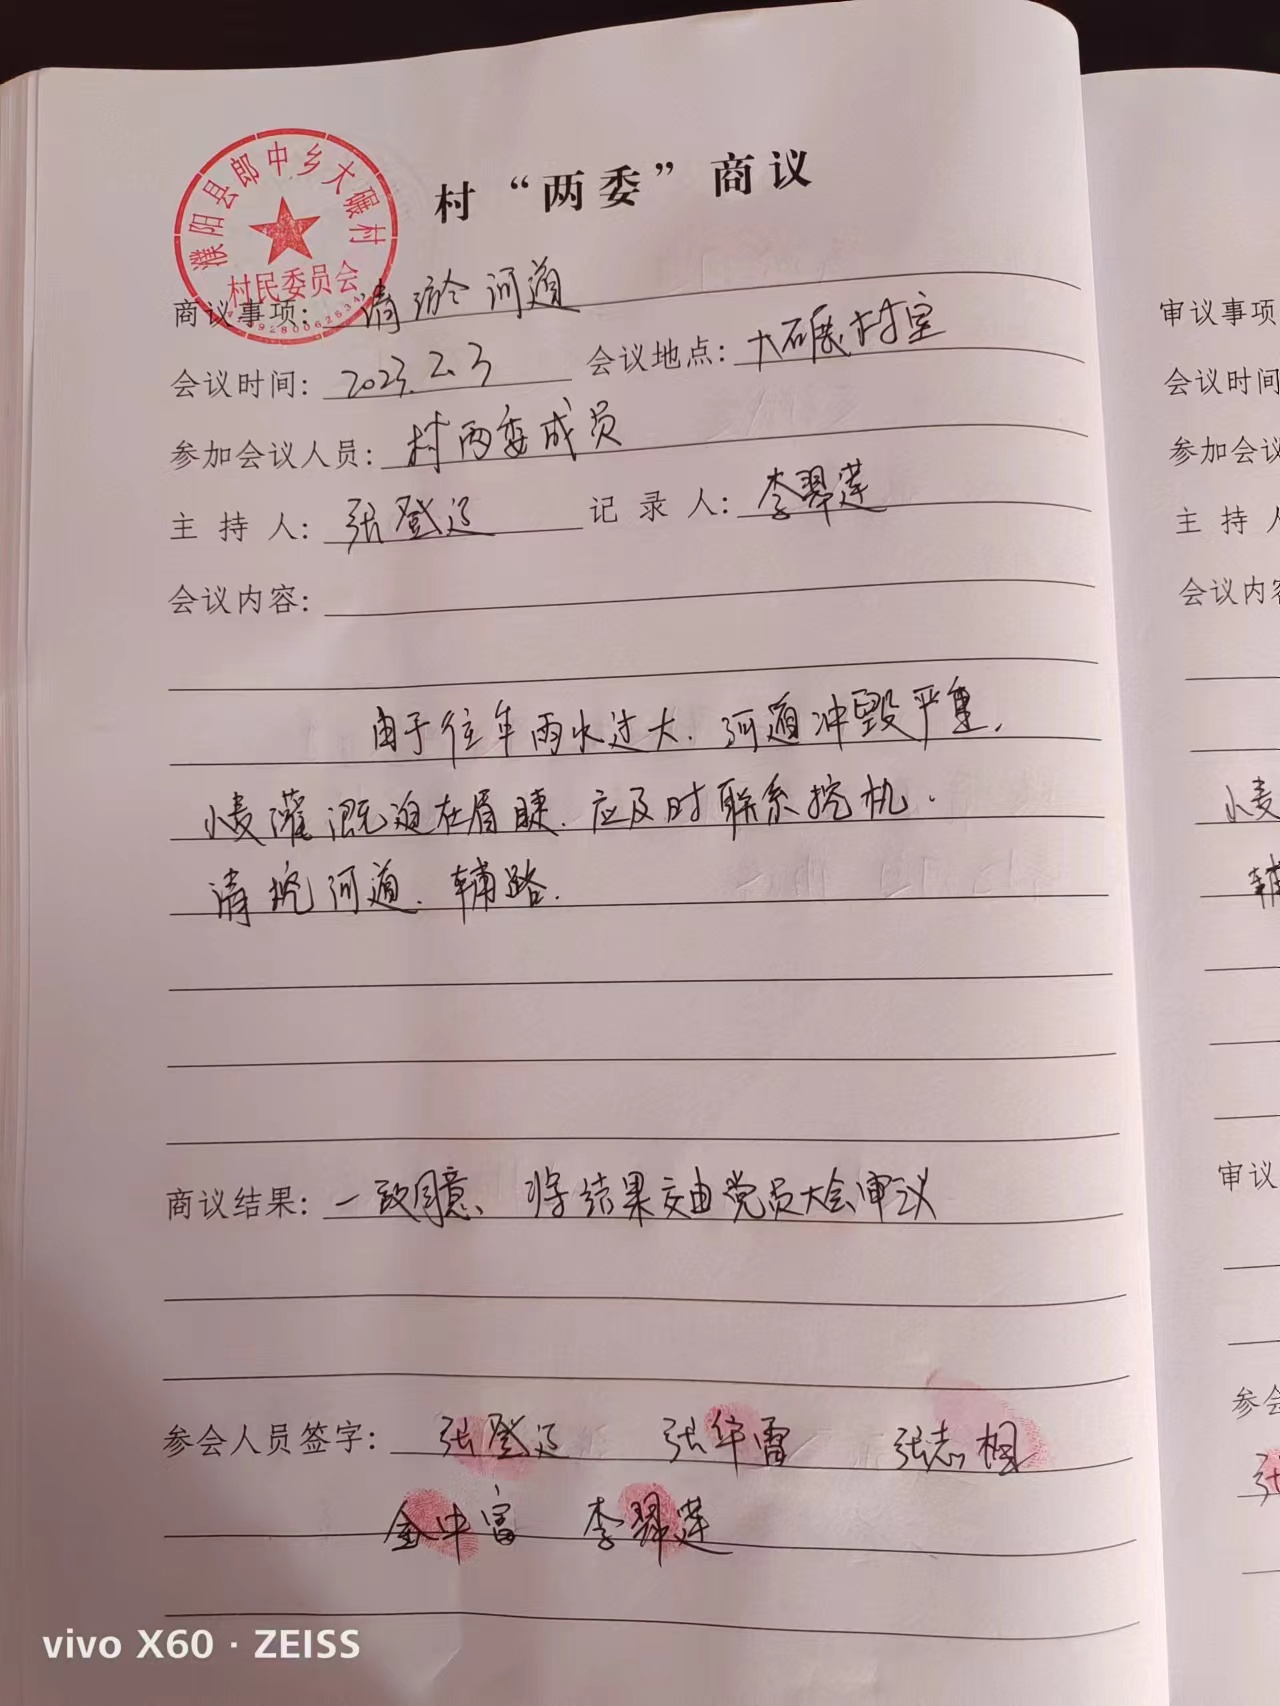 村“两委”商议
濮阳县郎中乡大碾村
村民委员会
商议事项：清淤河道
会议时间：2023.2.3 会议地点：大碾村室
参加会议人员：村两委成员
主持人：张登 记录人：李翠莲
会议内容：
由于往年雨水过大、河道冲毁严重，
小麦灌溉迫在眉睫、应及时联系挖机．
清挖河道、辅路．
商议结果：一致同意、将结果交由党员大会审议
参会人员签字：张登 张华雷 张志相
金中富 李翠莲
审议事项
会议时间
参加会议
主持人
会议内容
小麦
辅
审议
参会
张
vivo X60 · ZEISS